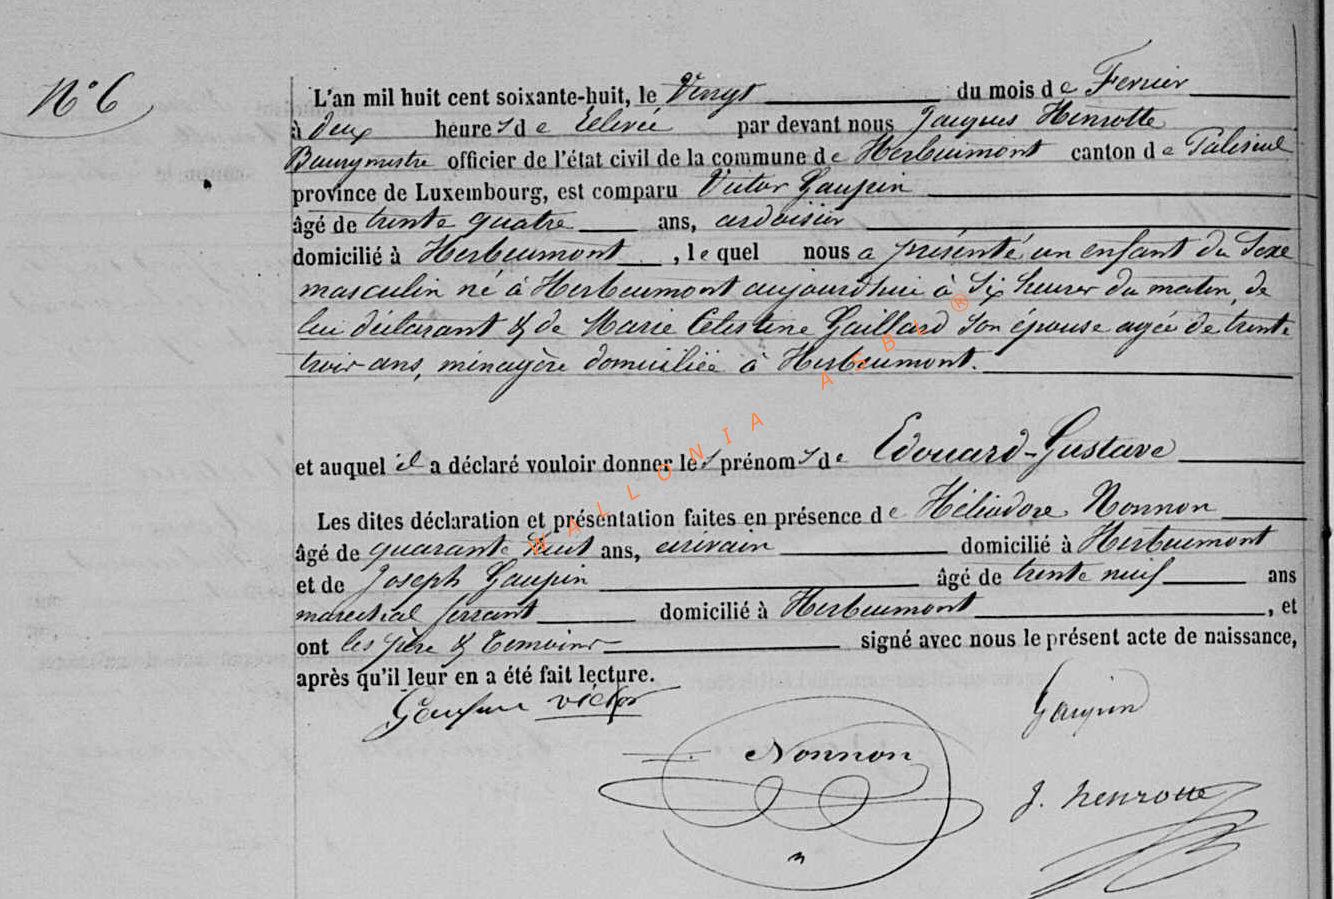 N° 6
L'an mil huit cent soixante-huit, le Vingt du mois de Fevrier
à deux heures de relevée par devant nous Jacques Henrotte
Bourgmestre officier de l'état civil de la commune de Herbeumont canton de Paliseul
province de Luxembourg, est comparu Victor Gaupin
âgé de trente quatre ans, ardoisier
domicilié à Herbeumont, lequel nous a présenté un enfant du Sexe
masculin né à Herbeumont aujourdhui à Six heures du matin, de
lui déclarant & de Marie Celestine Gaillard son épouse agée de trente
trois ans, ménagère domiciliée à Herbeumont.
et auquel il a déclaré vouloir donner les prénoms de Edouard-Gustave
Les dites déclaration et présentation faites en présence de Héliodore Nonnon
âgé de quarante huit ans, écrivain domicilié à Herbeumont
et de Joseph Gaupin âgé de trente neuf ans
marechal ferrant domicilié à Herbeumont, et
ont les père & temoins signé avec nous le présent acte de naissance,
après qu'il leur en a été fait lecture.
Gaupin victor
Gaupin
Nonnon
J. henrotte
WALLONIA ASBL ®